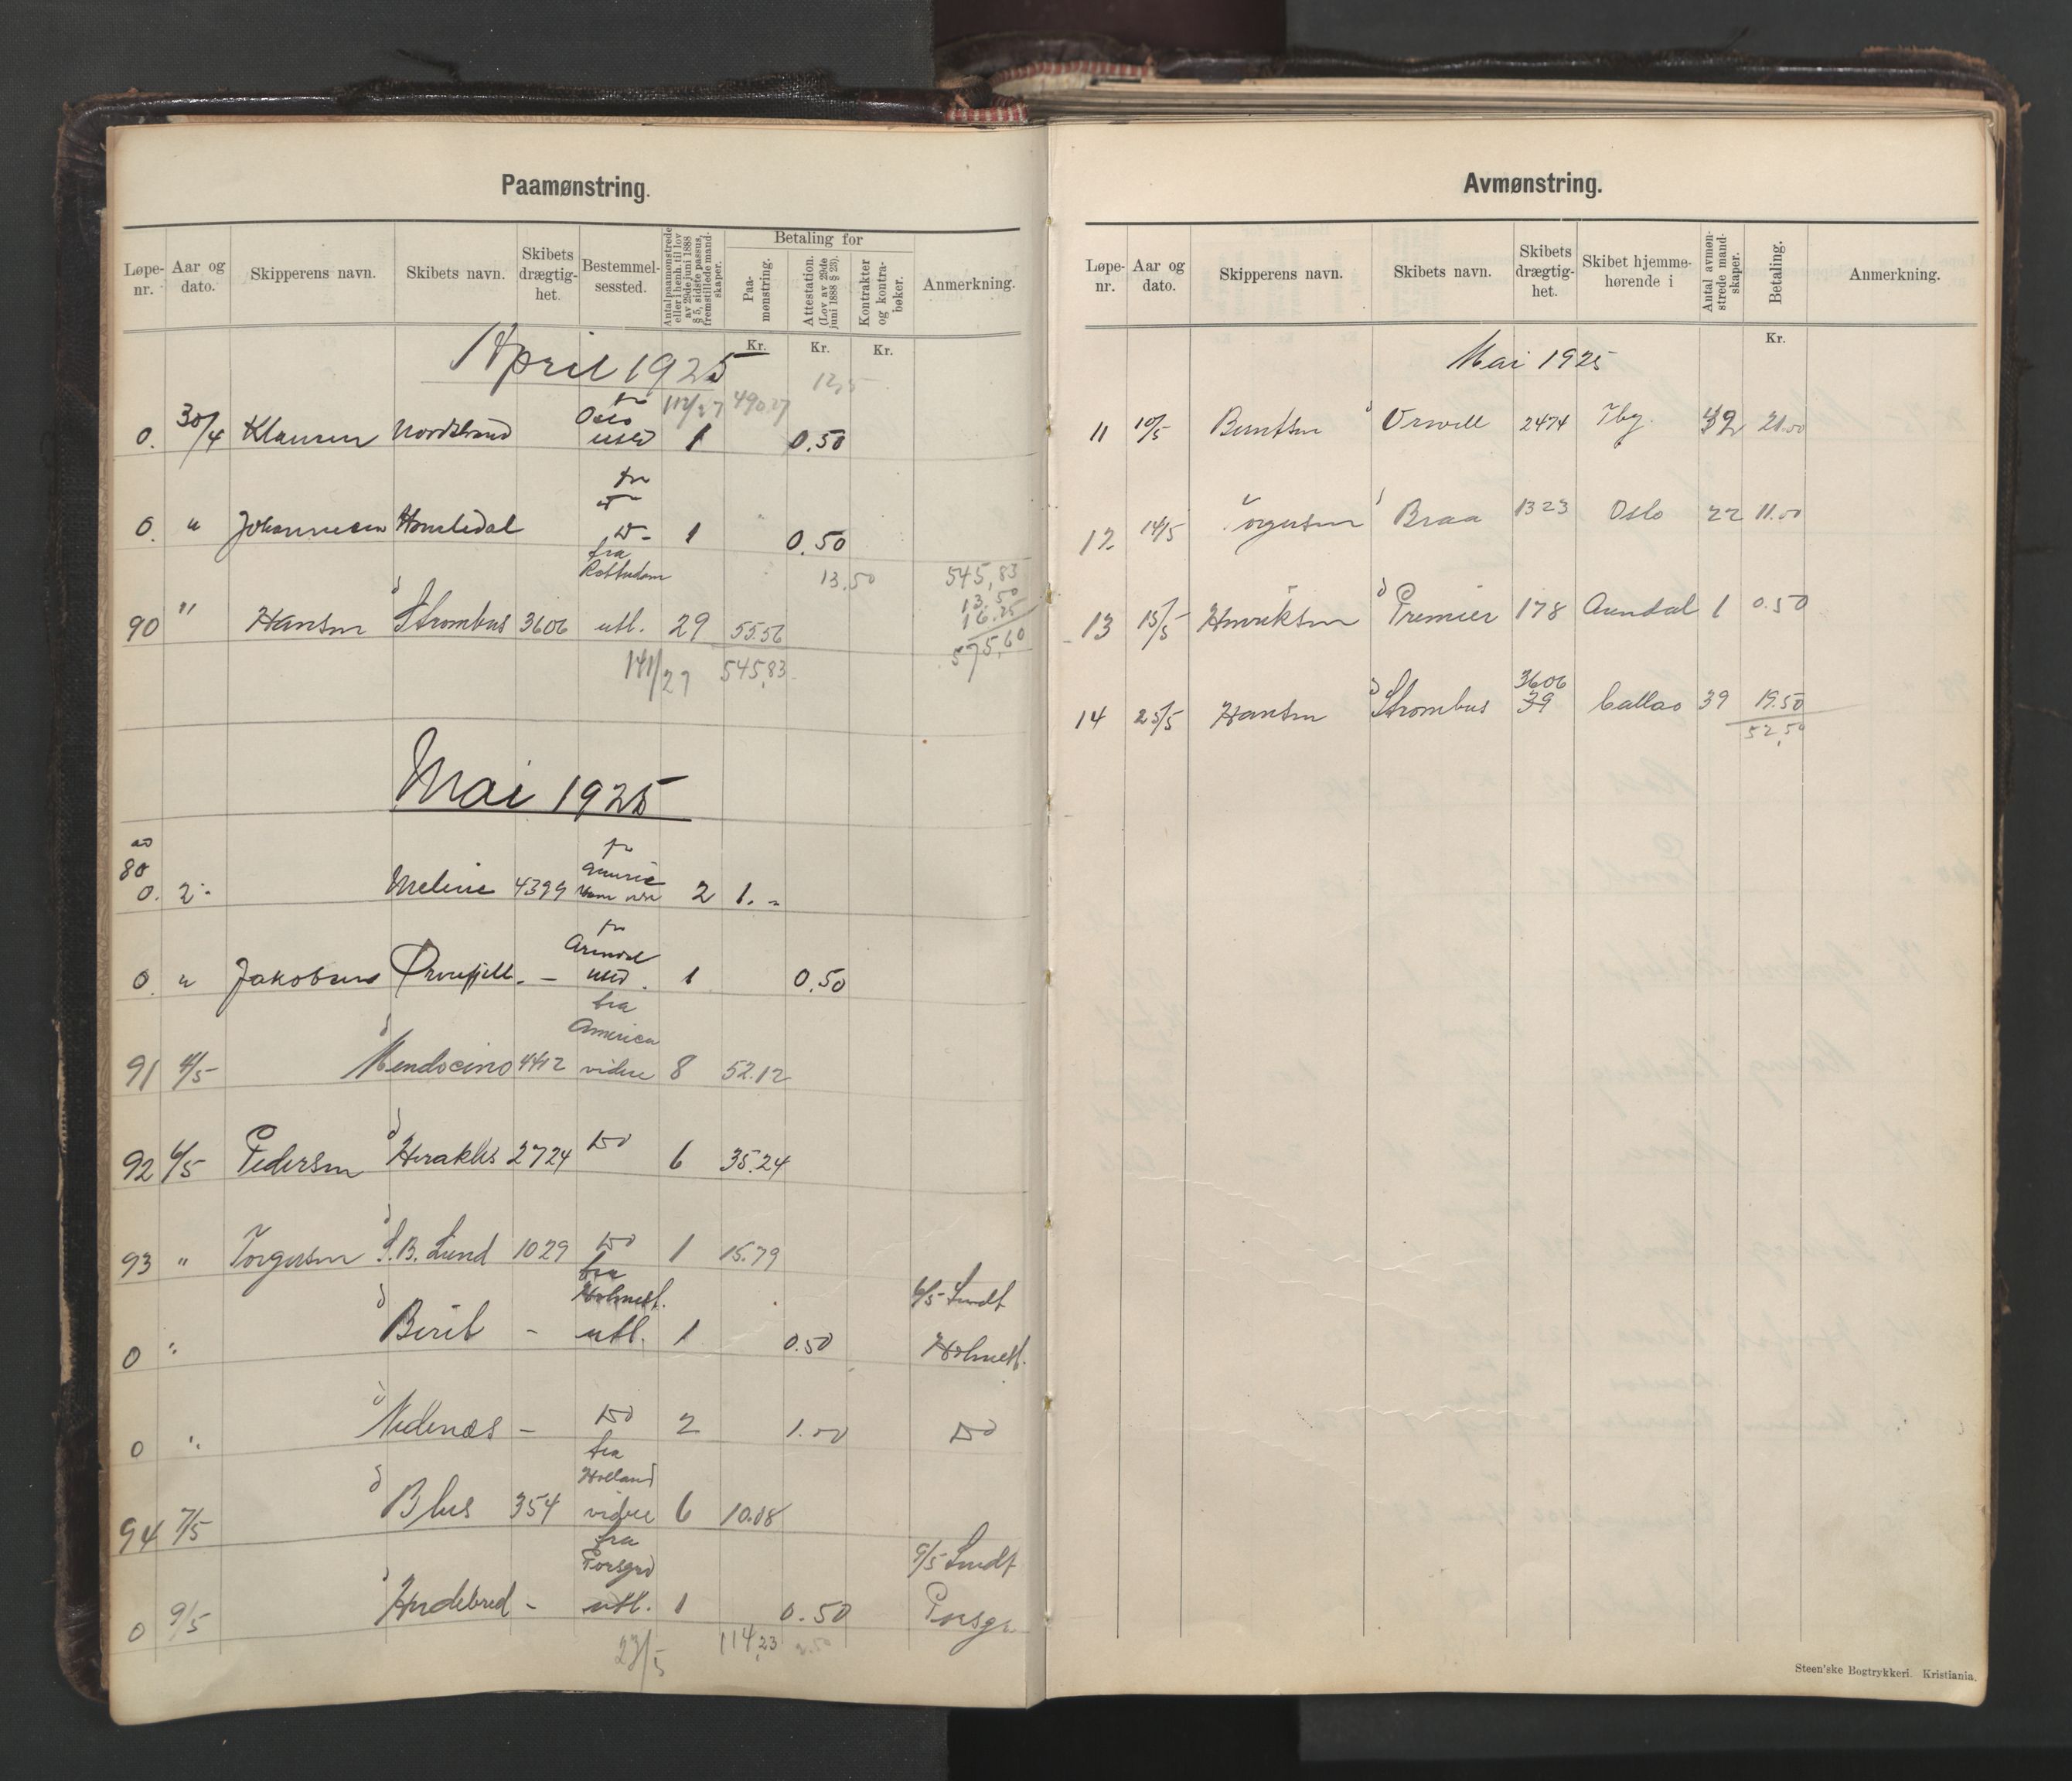 Paamønstring.
Løpe-nr. Aar og dato. Skipperens navn. Skibets navn. Skibets drægtig-het. Bestemmel-sessted. Antal paamønstrede eller i henh. til lov av 29de juni 1888 § 5, sidste passus, fremstillede mand-skaper. Betaling for Paa-mønstring. Attestation. (Lov av 29de juni 1888 § 23). Kontrakter og kontra-bøker. Anmerkning.
Kr. Kr. Kr.
April 1925
112/27 490.27
0. 30/4 Klausen Nordstrand fra Oslo utld 1 0.50
0. " Johannesen Homledal fra 1 0.50
13.50 545,83
13.50
16.25
575,60
90 " Hansen d Strombus 3606 fra Rotterdam utl. 29 55.56
141/27 545,83
Mai 1925
80
0. 2 Meline 4399 fra 2 1.-
0. " Jakobsen Ørnefjell - fra Arendal utld. 1 0.50
91 4/5 d Mendocino 4412 fra America videre 8 52.12
92 6/5 Pedersen d Herakles 2724 do 6 35.24
93 " Torgersen d S.B. Lund 1029 do 1 15.79
0 " d Birib - fra Holmest. utl. 1 0.50 6/5 Sendt Holmest.
0 " d Nedenæs - do 2 1.00 do
94 7/5 d Blus 354 fra Holland videre 6 10.08
0 9/5 d Hudebred - fra Porsgrd utl. 1 0.50 9/5 Sendt Porsgr.
23/5 114,23 2.50
Avmønstring.
Løpe-nr. Aar og dato. Skipperens navn. Skibets navn. Skibets drægtig-het. Skibet hjemme-hørende i Antal avmøn-strede mand-skaper. Betaling. Anmerkning.
Kr.
Mai 1925
11 10/5 Berntsen d Orwell 2474 Tbg. 42 21.00
12 14/5 Torgersen d Braa 1323 Oslo 22 11.00
13 15/5 Henriksen d Premier 178 Arendal 1 0.50
14 25/5 Hansen d Strombus 3606 39 Callao 39 19.50
52,50
Steen'ske Bogtrykkeri. Kristiania.